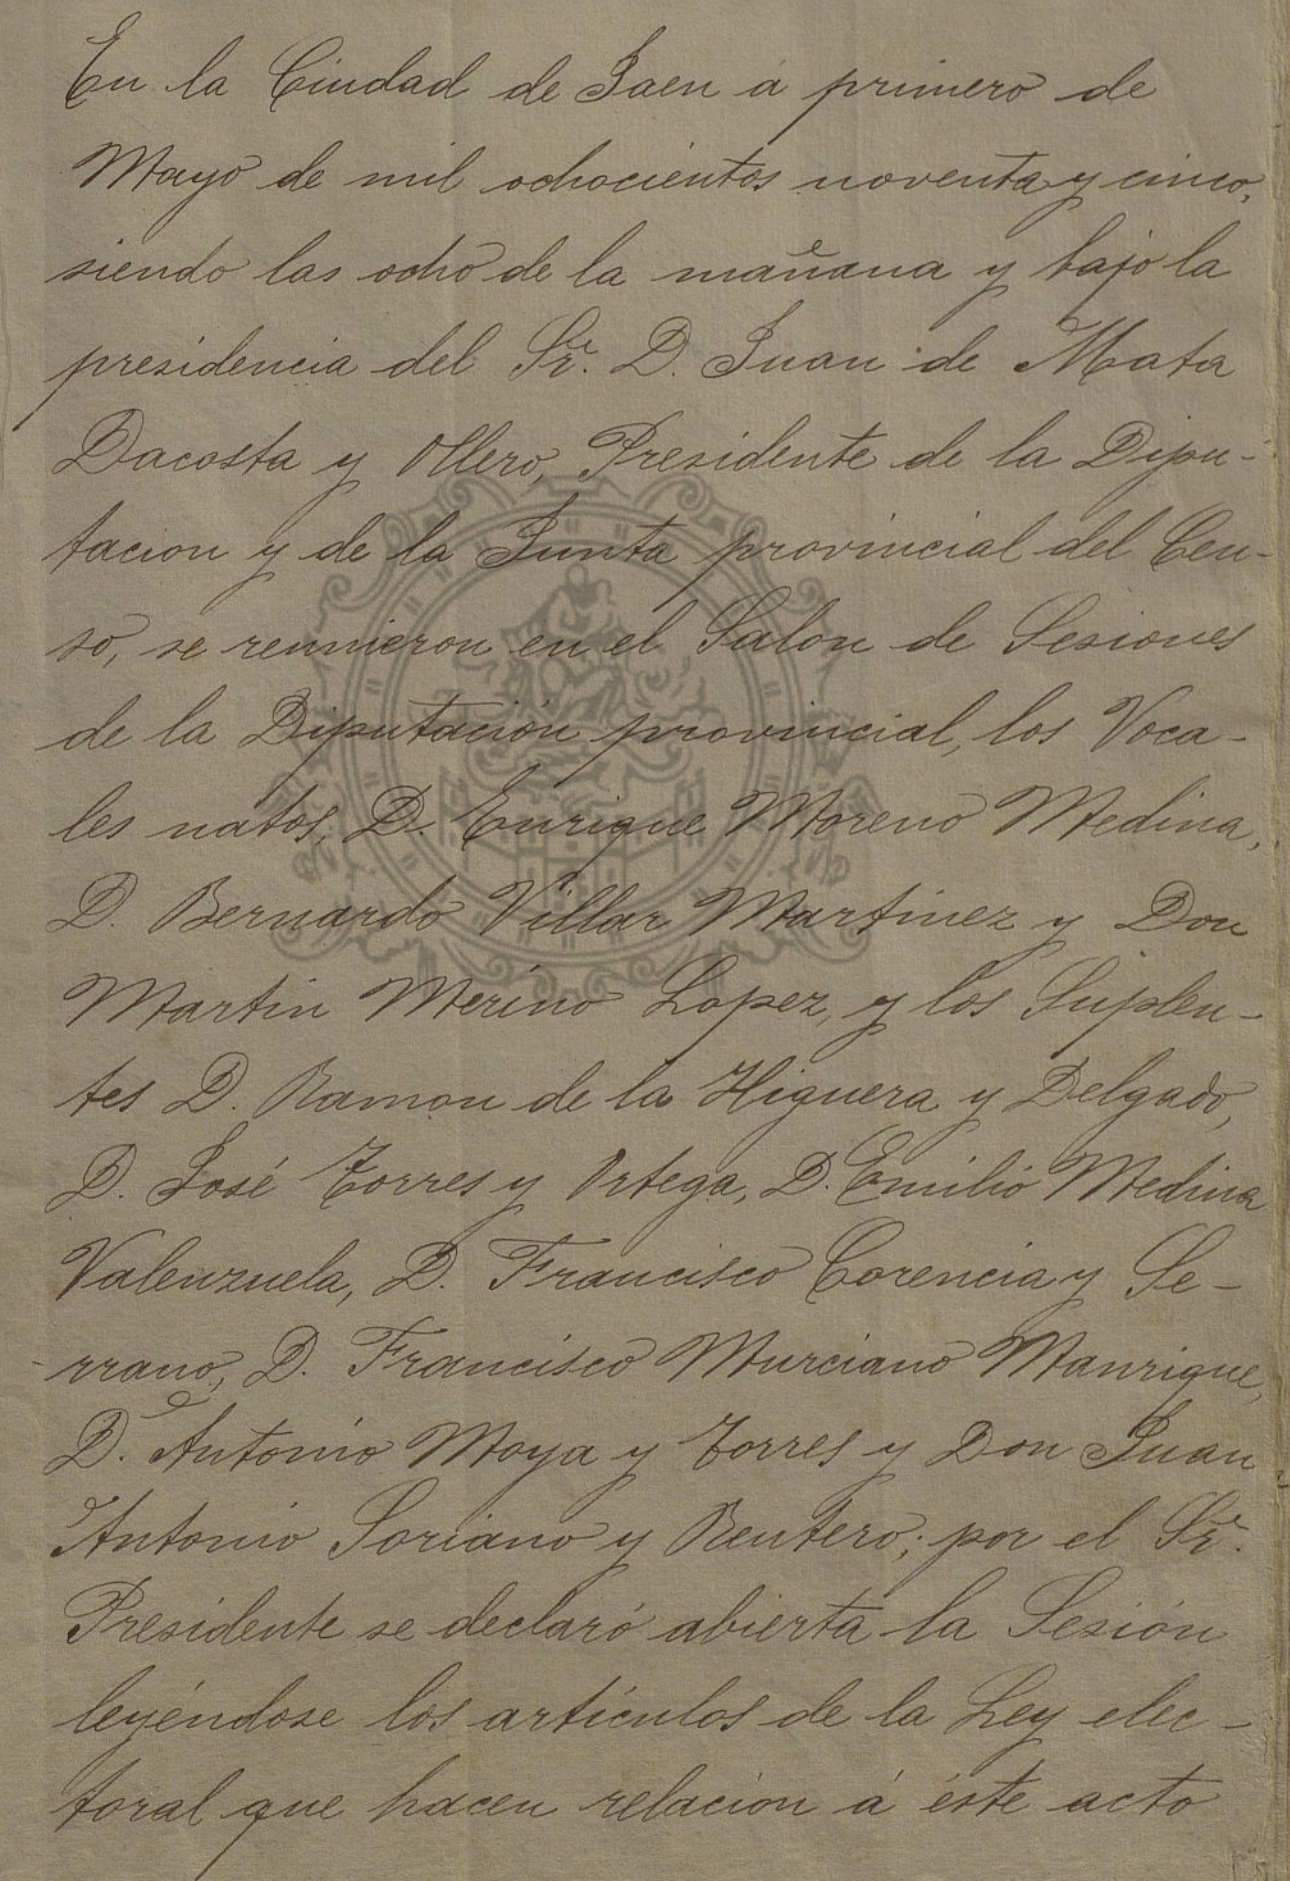 En la Ciudad de Jaen á primero de
Mayo de mil ochocientos noventa y cinco,
siendo las ocho de la mañana y bajo la
presidencia del Sr. D. Juan de Mata
Dacosta y Ollero, Presidente de la Dipu-
tacion y de la Junta provincial del Cen-
so, se reunieron en el Salon de Sesiones
de la Diputación provincial, los Voca-
les natos, D. Enrique Moreno Medina,
D. Bernardo Villar Martinez y Don
Martin Merino Lopez, y los Suplen-
tes D. Ramon de la Higuera y Delgado,
D. José Torres y Ortega, D. Emilio Medina
Valenzuela, D. Francisco Corencia y Se-
rrano, D. Francisco Murciano Manrique,
D. Antonio Moya y Torres y Don Juan
Antonio Soriano y Rentero; por el Sr.
Presidente se declaró abierta la Sesión
leyéndose los artículos de la Ley elec-
toral que hacen relación á éste acto